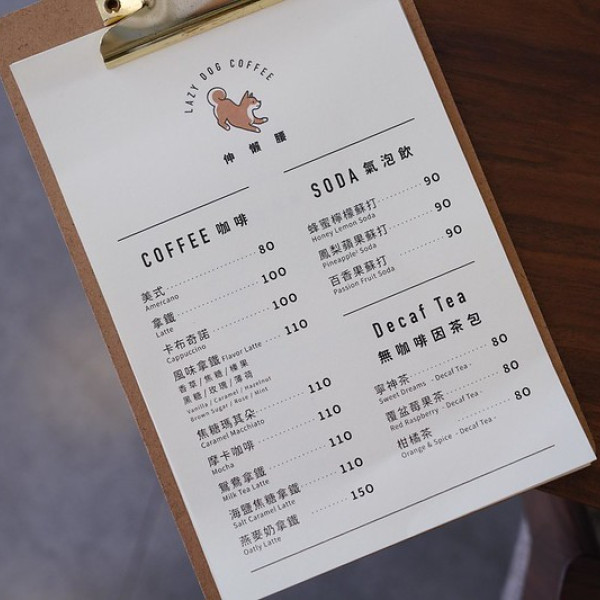 LAZY DOG COFFEE
伸懶腰
COFFEE 咖啡
美式 80
Americano
拿鐵 100
Latte
卡布奇諾 100
Cappuccino
風味拿鐵 Flavor Latte 110
香草/焦糖/榛果
黑糖/玫瑰/薄荷
Vanilla / Caramel / Hazelnut
Brown Sugar / Rose / Mint
焦糖瑪其朵 110
Caramel Macchiato
摩卡咖啡 110
Mocha
鴛鴦拿鐵 110
Milk Tea Latte
海鹽焦糖拿鐵 110
Salt Caramel Latte
燕麥奶拿鐵 150
Oatly Latte
SODA 氣泡飲
蜂蜜檸檬蘇打 90
Honey Lemon Soda
鳳梨蘋果蘇打 90
Pineapple Soda
百香果蘇打 90
Passion Fruit Soda
Decaf Tea
無咖啡因茶包
寧神茶 80
Sweet Dreams - Decaf Tea -
覆盆莓果茶 80
Red Raspberry - Decaf Tea -
柑橘茶 80
Orange & Spice - Decaf Tea -